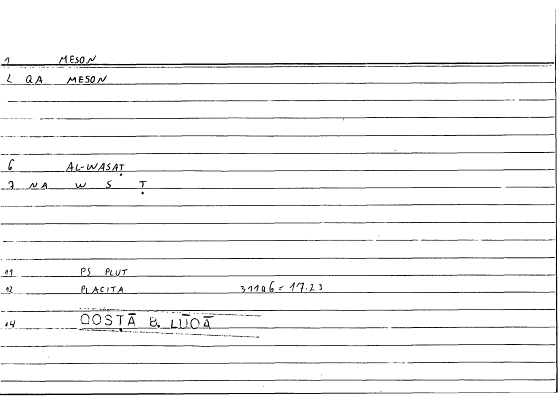 1 MESON
L QA MESON
6 AL-WASAṬ
7 NA W S Ṭ
11 PS PLUT
12 PLACITA 311a6 = 17.23
14 QOSṬĀ B. LŪQĀ